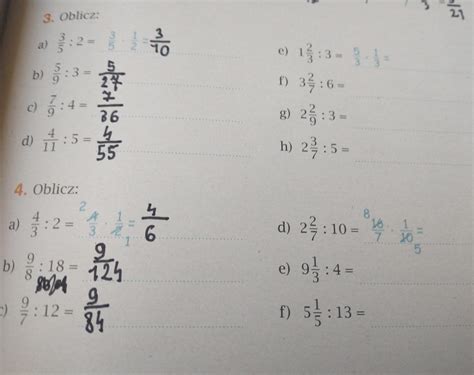 3. Oblicz:
a) 3/5 : 2 = 3/5 · 1/2 = 3/10
b) 5/9 : 3 = 5/27
c) 7/9 : 4 = 7/36
d) 4/11 : 5 = 4/55
e) 1 2/3 : 3 = 5/3 · 1/3 =
f) 3 2/7 : 6 =
g) 2 2/9 : 3 =
h) 2 3/7 : 5 =
4. Oblicz:
a) 4/3 : 2 = 2 4/3 · 1/2 1 = 4/6
b) 9/8 : 18 = 9/124
c) 9/7 : 12 = 9/84
d) 2 2/7 : 10 = 8 16/7 · 1/10 5 =
e) 9 1/3 : 4 =
f) 5 1/5 : 13 =